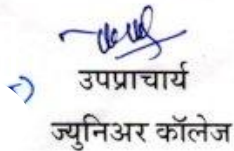 उपप्राचार्य
ज्युनिअर कॉलेज